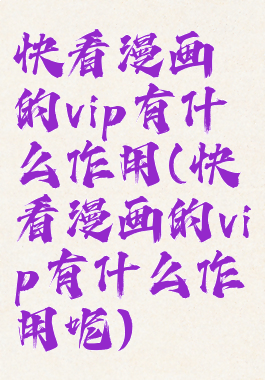 快看漫画
的vip有什
么作用(快
看漫画的vi
p有什么作
用呢)